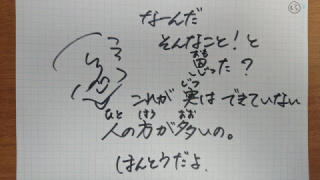 なーんだ
そんなこと！と
思った？
これが実はできていない
人の方が多いの。
ほんとうだよ